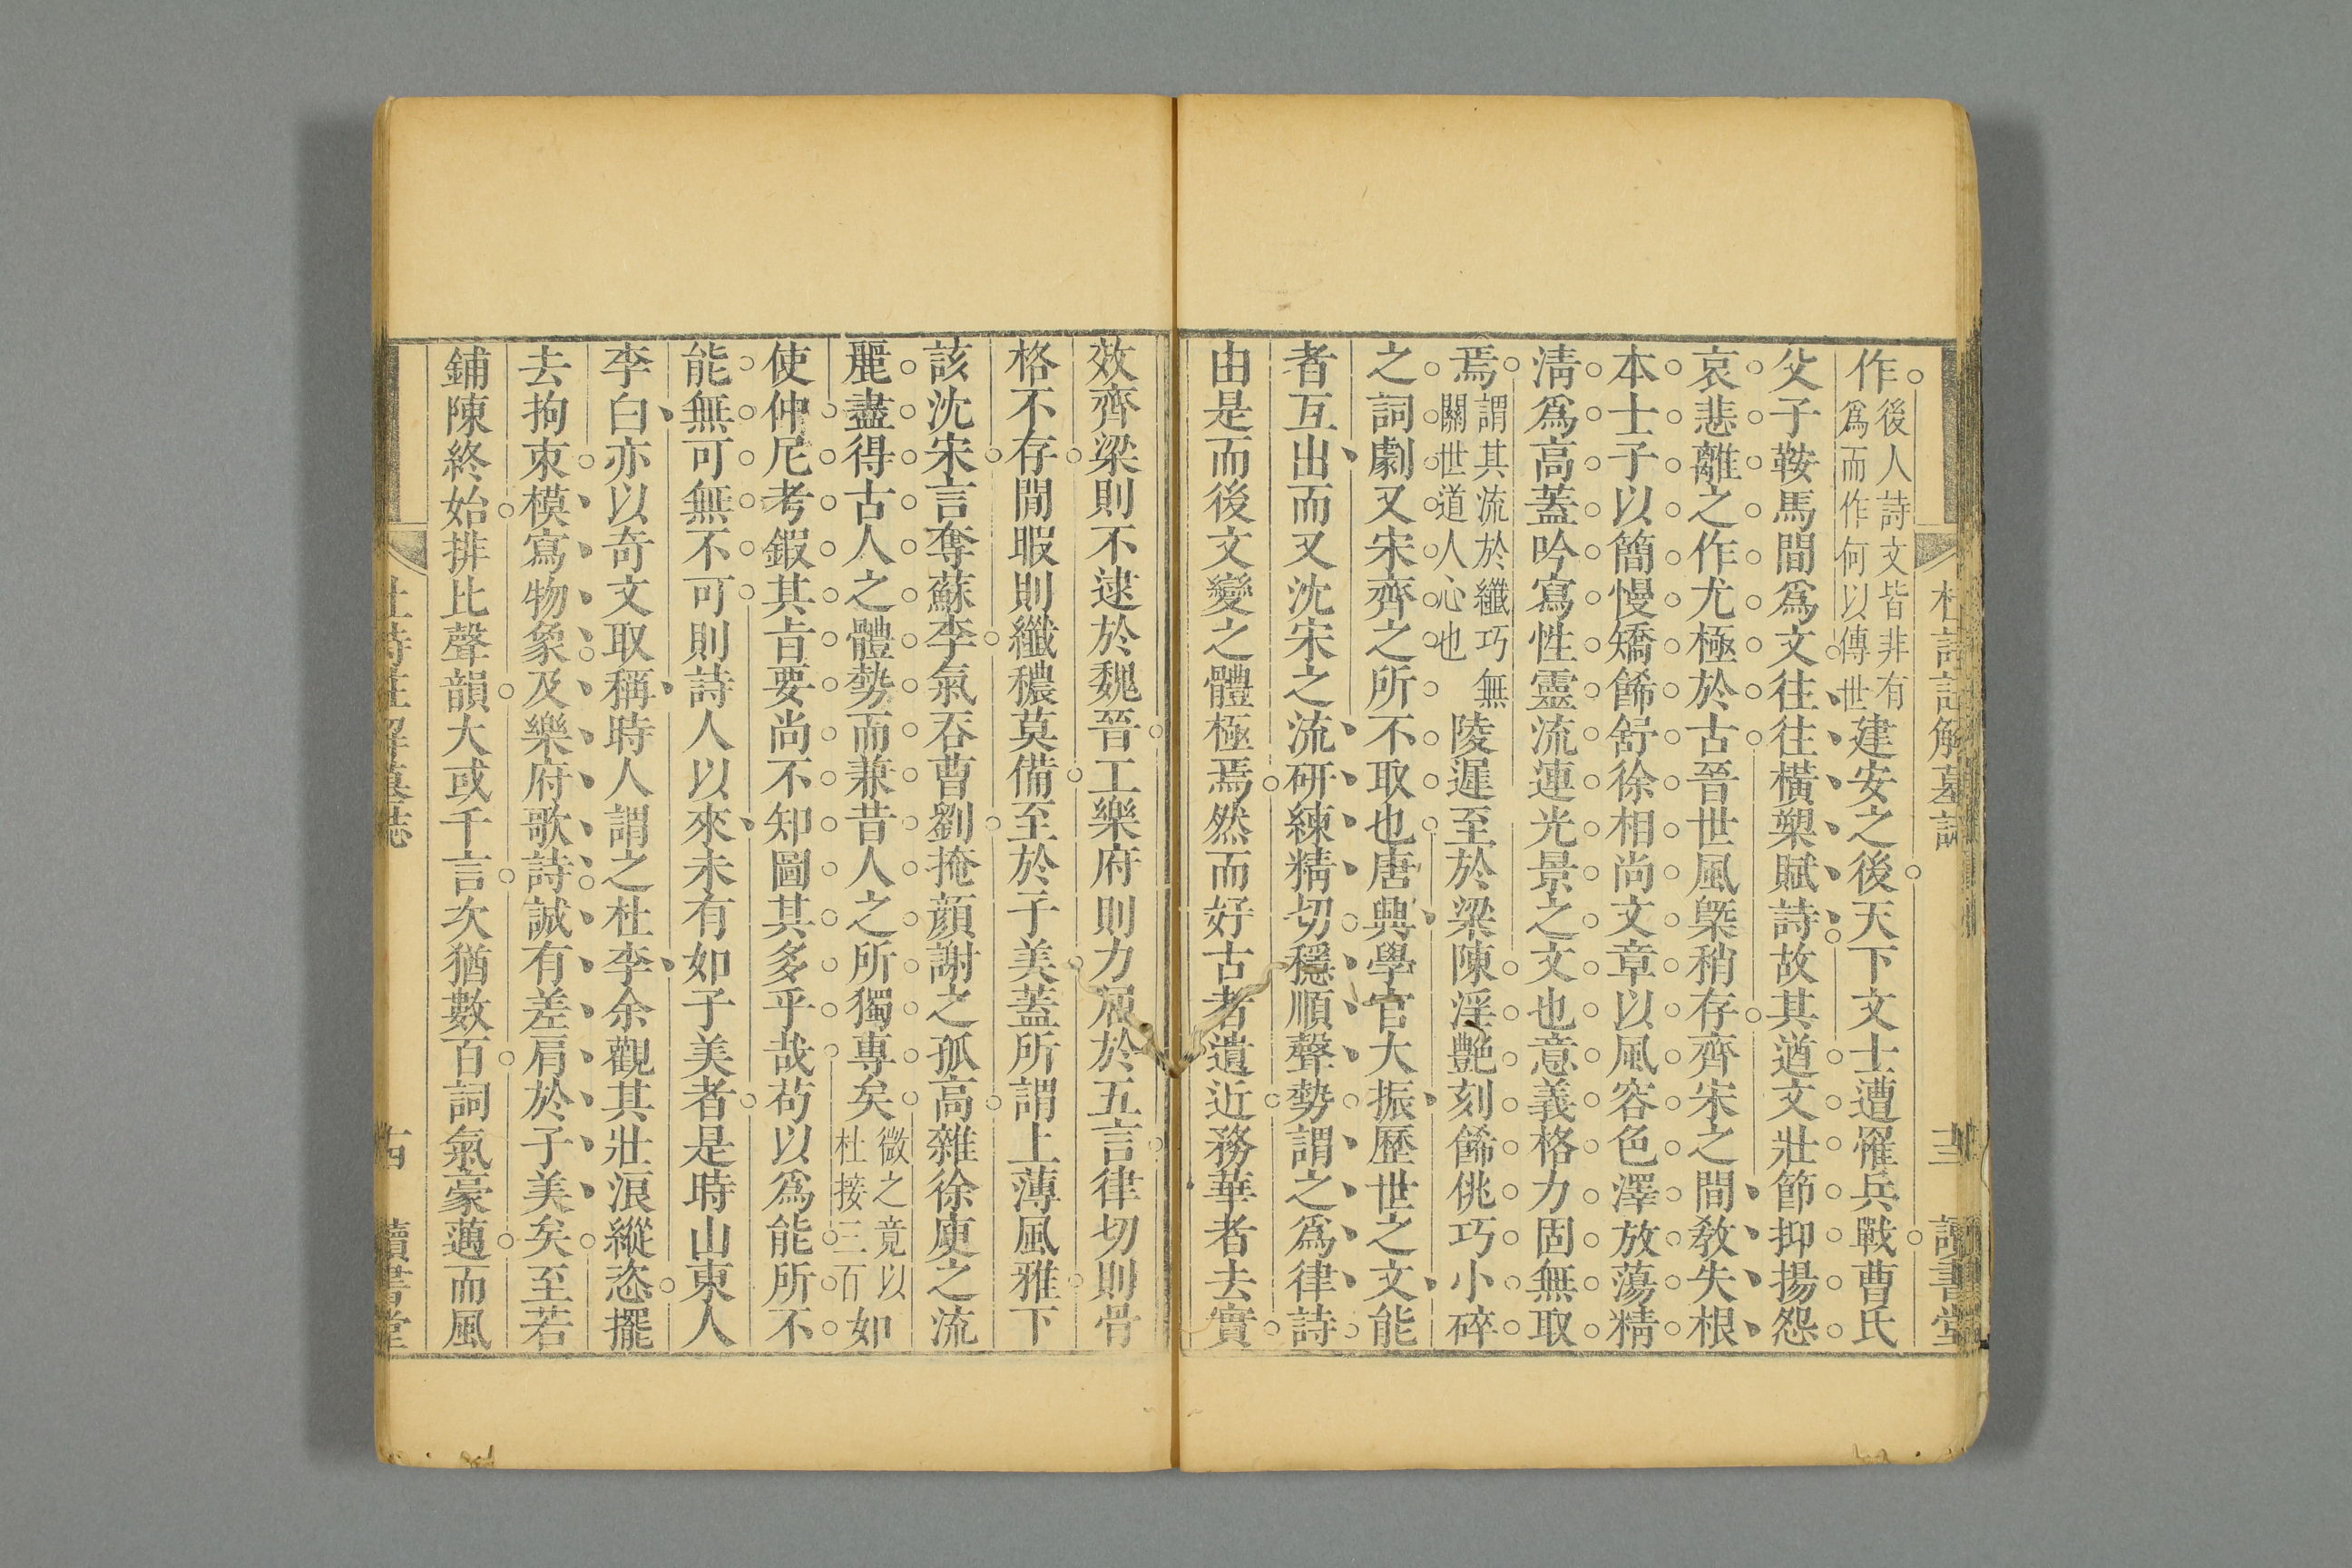 杜詩註解墓誌 十三 讀書堂
作後人詩文皆非有爲而作何以傳世建安之後天下文士遭罹兵戰曹氏
父子鞍馬間爲文往往橫槊賦詩故其遒文壯節抑揚怨
哀悲離之作尤極於古晉世風槩稍存齊宋之間教失根
本士子以簡慢矯餙舒徐相尚文章以風容色澤放蕩精
淸爲高蓋吟寫性靈流連光景之文也意義格力固無取
焉謂其流於纖巧無關世道人心也陵遲至於梁陳淫艷刻餙佻巧小碎
之詞劇又宋齊之所不取也唐興學官大振歷世之文能
者互出而又沈宋之流研練精切穩順聲勢謂之爲律詩
由是而後文變之體極焉然而好古者遺近務華者去實
效齊梁則不逮於魏晉工樂府則力屈於五言律切則骨
格不存閒暇則纖穠莫備至於子美蓋所謂上薄風雅下
該沈宋言奪蘇李氣吞曹劉掩顔謝之孤高雜徐庾之流
麗盡得古人之體勢而兼昔人之所獨專矣微之竟以杜接三百如
使仲尼考鍜其㫖要尚不知圖其多乎哉苟以爲能所不
能無可無不可則詩人以來未有如子美者是時山東人
李白亦以奇文取稱時人謂之杜李余觀其壯浪縱恣擺
去拘束模寫物象及樂府歌詩誠有差肩於子美矣至若
鋪陳終始排比聲韻大或千言次猶數百詞氣豪邁而風
杜詩註解墓誌 十四 讀書堂